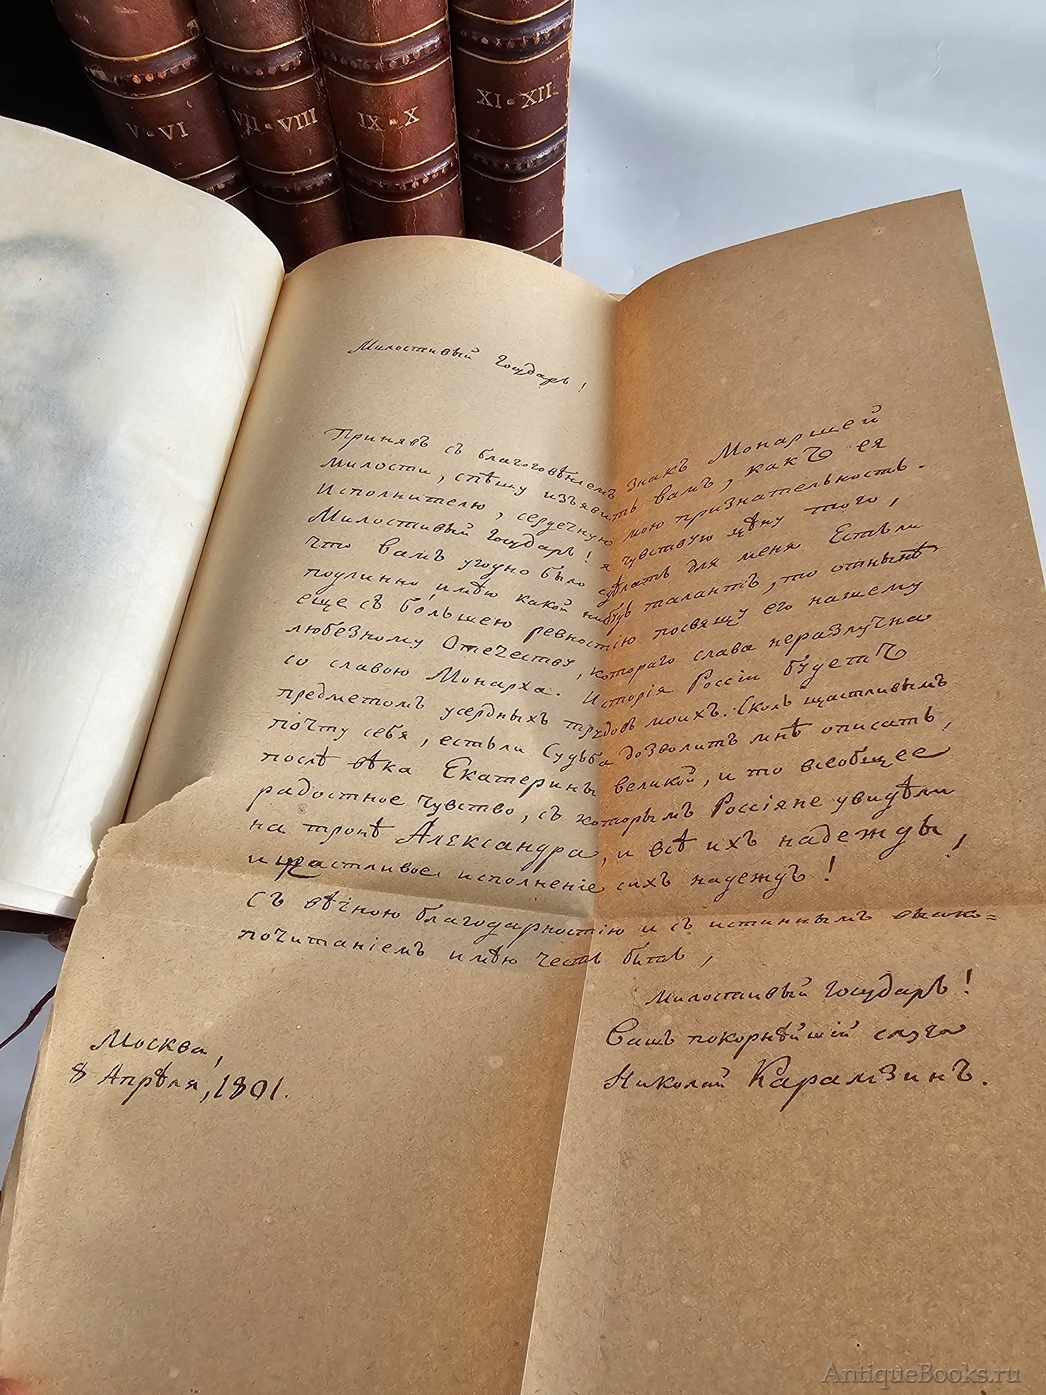 V-VI
VII-VIII
IX-X
XI-XII
Милостивый Государь!
Принявъ съ благоговѣніемъ знакъ Монаршей
милости, спѣшу изъявить вамъ, какъ ея
Исполнителю, сердечную мою признательность.
Милостивый Государь! я чувствую цѣну того,
что вамъ угодно было сдѣлать для меня. Естьли
подлинно имѣю какой нибудь талантъ, то отнынѣ
еще съ бо́льшею ревностію посвящу его нашему
любезному Отечеству, котораго слава неразлучна
со славою Монарха. Исторія Россіи будетъ
предметомъ усердныхъ трудовъ моихъ. Сколь щастливымъ
почту себя, естьли Судьба дозволитъ мнѣ описать,
послѣ вѣка Екатерины великой, и то всеобщее
радостное чувство, съ которымъ Россіяне увидѣли
на тронѣ Александра, и всѣ ихъ надежды,
и щастливое исполненіе сихъ надеждъ!
Съ вѣчною благодарностію и съ истиннымъ высоко=
почитаніемъ имѣю честь быть,
Милостивый Государь!
Вашъ покорнѣйшій слуга
Николай Карамзинъ.
Москва,
8 Апрѣля, 1801.
AntiqueBooks.ru